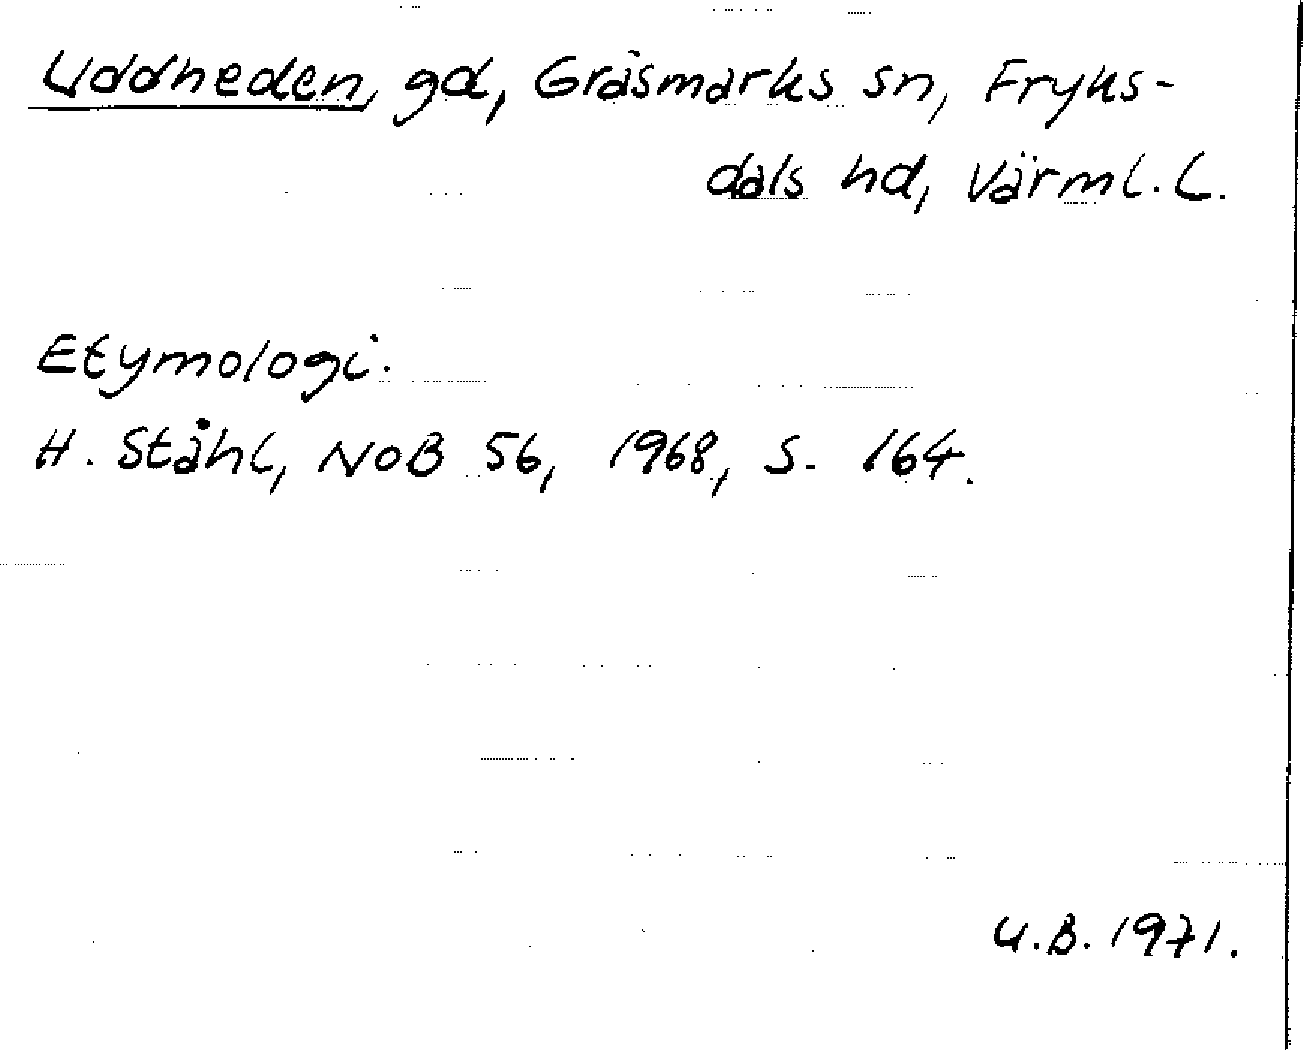 Uddheden, gd, Gräsmarks sn, Fryks-
dals hd, Värml. l.
Etymologi.
H. Ståhl, NoB 56, 1968, s. 164.
U.B. 1971.